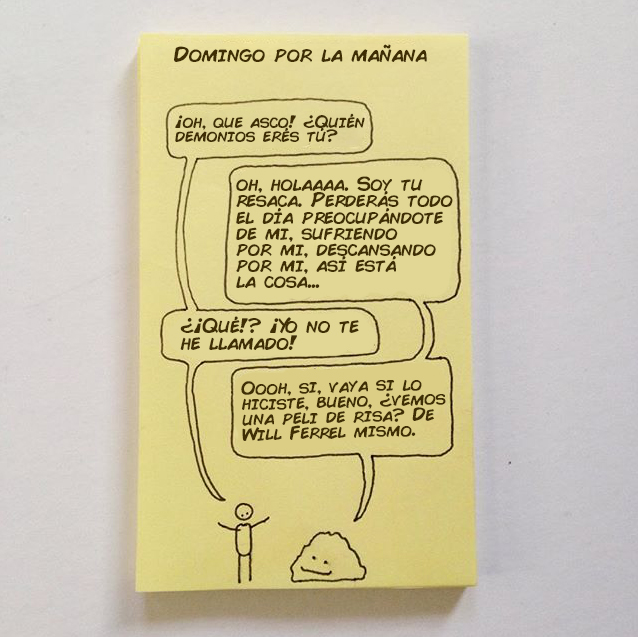 Domingo por la mañana
¡Oh, que asco! ¿Quién
demonios erés tú?
Oh, holaaaa. Soy tu
resaca. Perderás todo
el día preocupándote
de mi, sufriendo
por mi, descansando
por mi, así está
la cosa...
¿¡Qué!? ¡Yo no te
he llamado!
Oooh, si, vaya si lo
hiciste, bueno, ¿vemos
una peli de risa? De
Will Ferrel mismo.